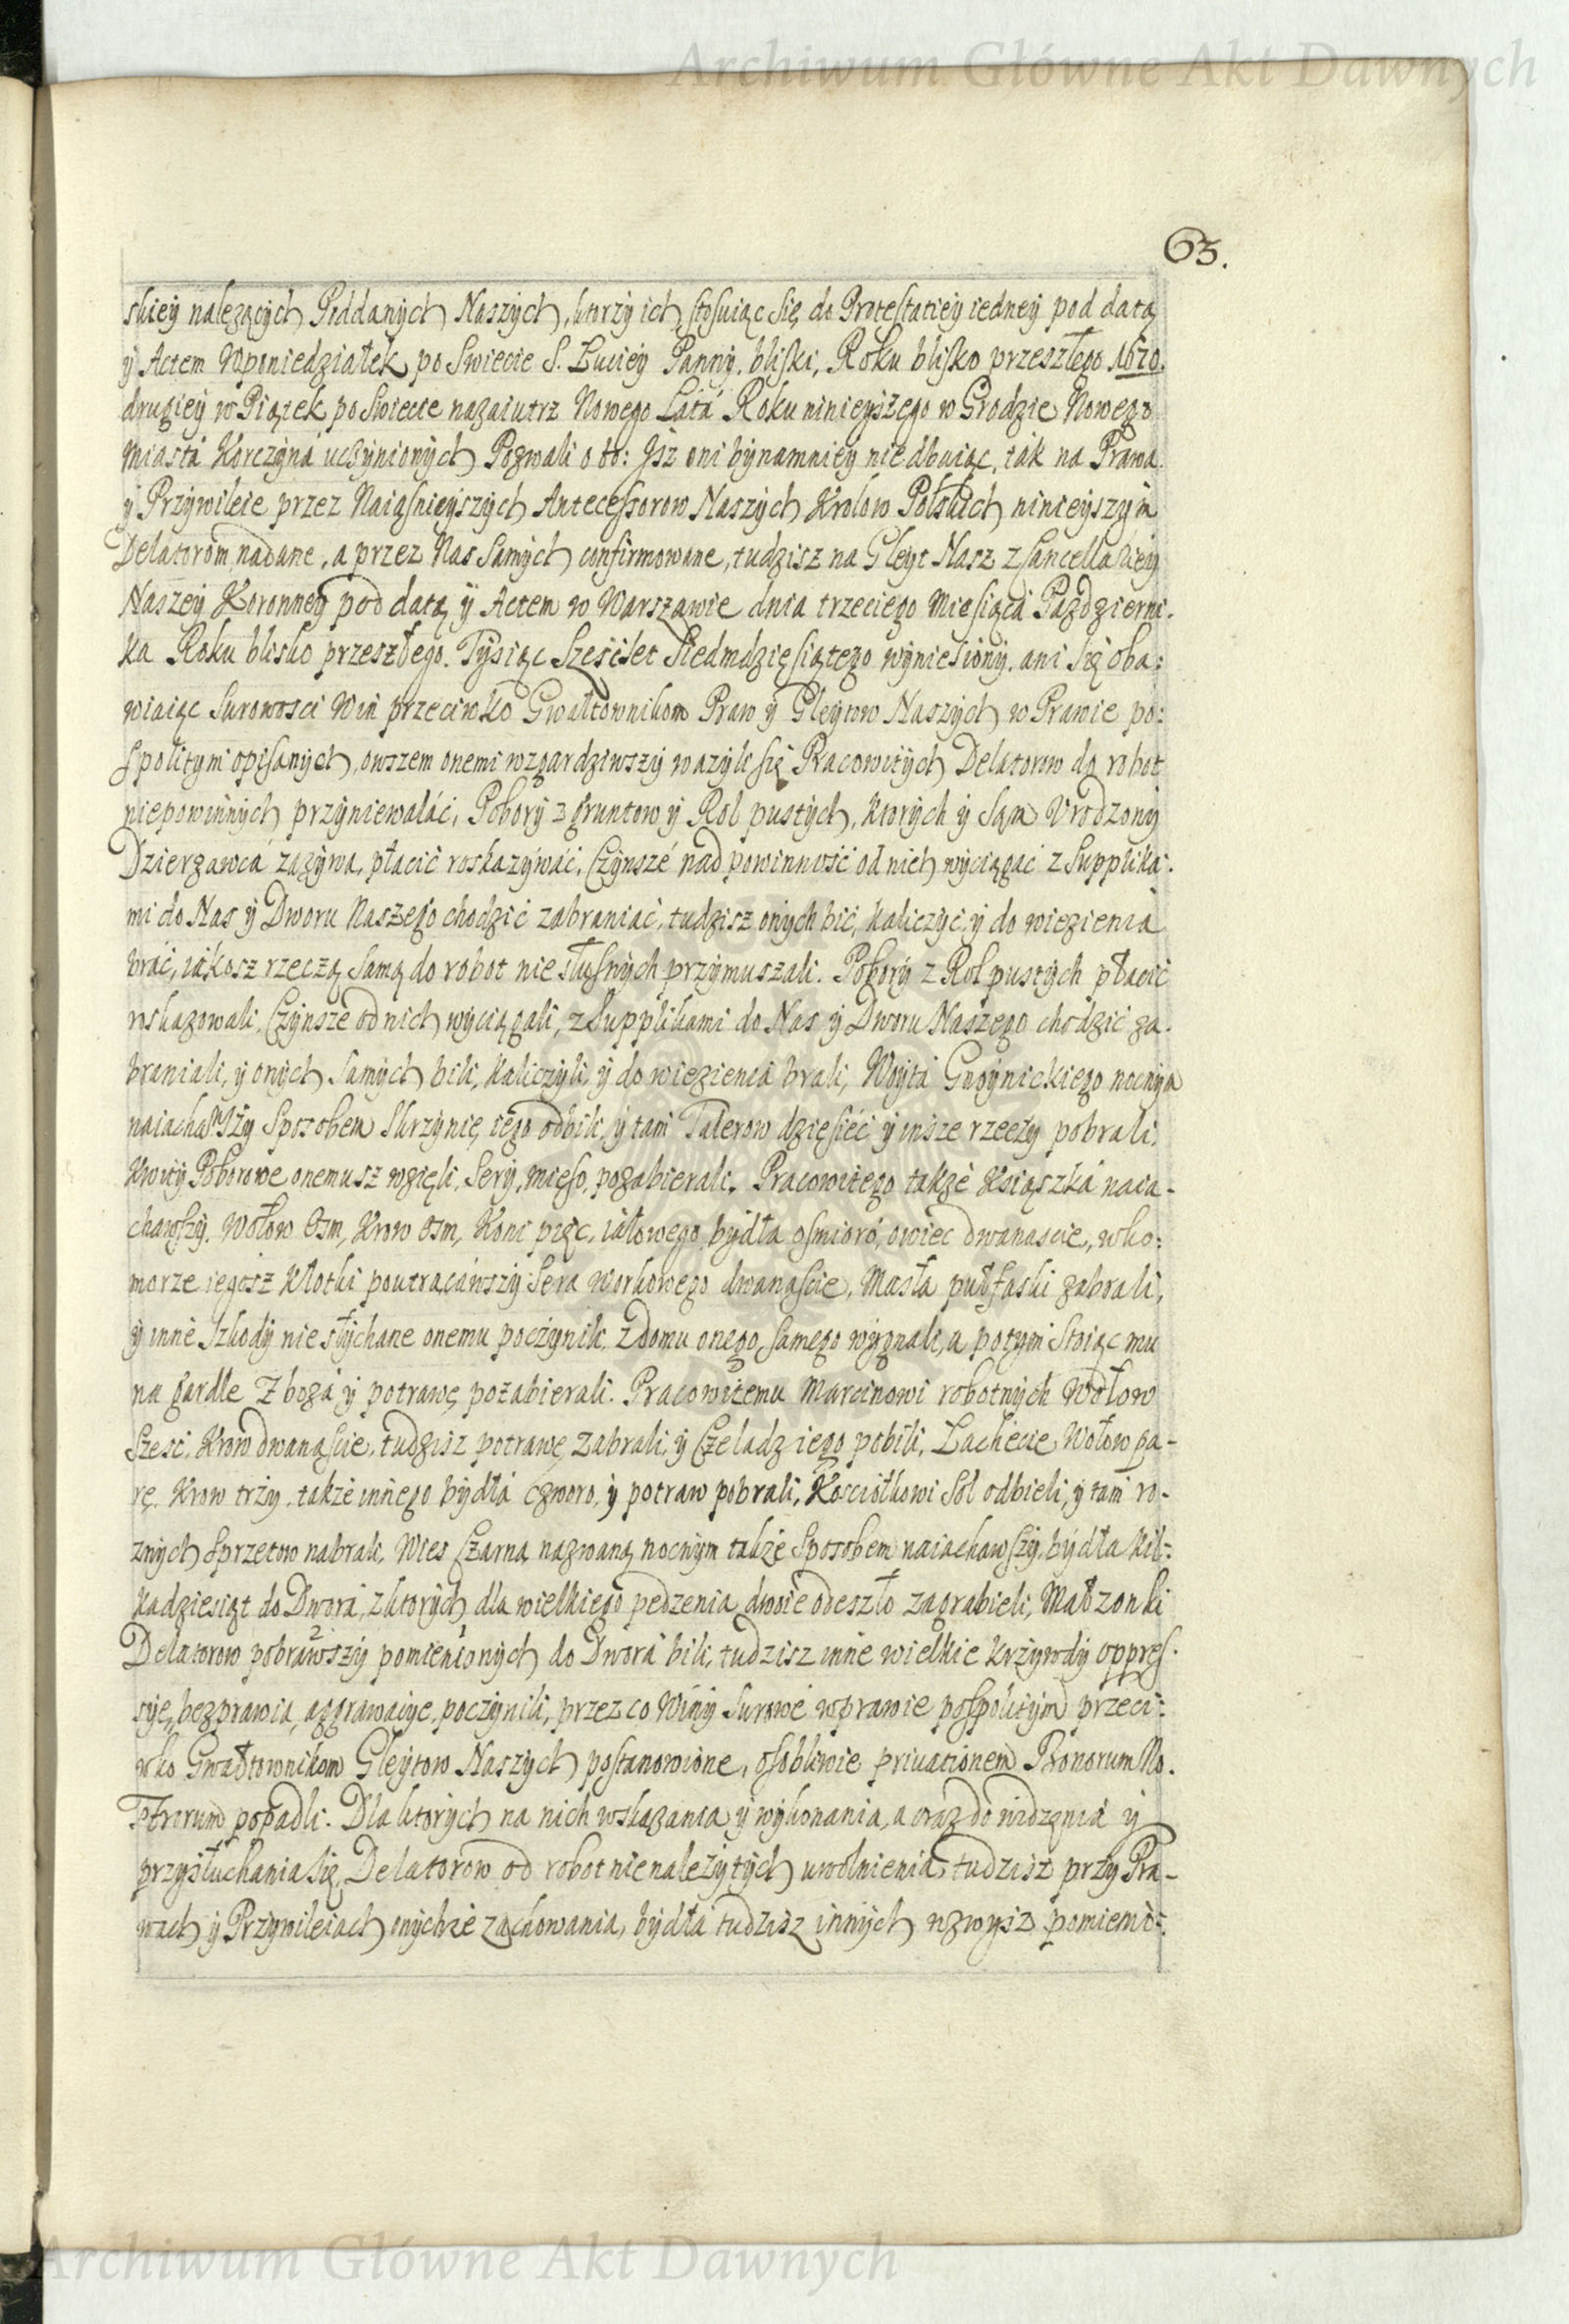 Archiwum Główne Akt Dawnych
63.
skiey nalezących Poddanych Naszych, ktorzy ich stosuiąc się do Protestatiey iedney pod datą
y Actem Wponiedziałek po Swiecie S. Luciey Panny, bliski, Roku blisko przeszłego 1670.
drugiey w Piątek po Swiecie nazaiutrz Nowego Latá Roku ninieyszego w Grodzie Nowego
Miastá Korczyná uczynionych Pozwali o to: Jsz oni bynamniey niedbaiąc, ták na Prawa
y Przywileie przez Naiasnieyszych Antecessorow Naszych Krolow Polskich ninieyszym
Delatorom nadane, a przez Nas Samych confirmowane, tudzisz na Gleyt Nasz z Cancellariey
Naszey Koronney pod datą y Actem w Warszawie dnia trzeciego Miesiącá Pazdzierni-
ka Roku blisko przeszłego Tysiąc Szescset Siedmdziesiątego wyniesiony, ani się oba:
wiaiąc Surowosci Win przeciwko Gwałtownikom Praw y Gleytow Naszych w Prawie po:
spolitym opisanych, owszem onemi wzgardziwszy wazyli się Pracowitych Delatorow do robot
niepowinnych przyniewaláć, Pobory z gruntow y Rol pustych, ktorych y Sam Vrodzony
Dzierzawcá zazywa, płacić roskazywáć, Czynsze nad powinność od nich wyciągać z Supplika-
mi do Nas y Dworu Naszego chodzić zabraniać, tudzisz onych bić, kaliczyć, y do wiezienia
bráć, iákosz rzeczą Samą do robot niesłusnych przymuszali. Pobory z Rol pustych płacić
roskazowali, Czynsze od nich wyciągali, z Supplikami do Nas y Dworu Naszego chodzić za-
braniali, y onych Samych bili, kaliczyli, y do wiezienia brali, Woytá Gnoynickiego nocnym
naiachawszy Sposobem Skrzynię iego odbili, y tam Talerow dziesięć y insze rzeczy pobrali,
Kwity Poborowe onemusz wzięli, Sery, mięso, pozabierali, Pracowitego także Książká naia-
chawszy, Wołow Osm, Krow osm, Koni pięc, iałowego bydła osmioro, owiec dwanascie, w ko:
morze iegosz Kłotki poutracawszy Sera workowego dwanascie, Masła pułfaski zabrali,
y inne Szkody niesłychane onemu poczynili, z domu onego Samego wygnali, a potym Stoiąc mu
na gardle Zbozá y potrawę pozabierali. Pracowitemu Marcinowi robotnych Wołow
Szesc, Krow dwanascie, tudzisz potrawę zabrali, y Czeladz iego pobili, Lachecie Wołow pa-
rę, Krow trzy, także innego bydłá czworo, y potraw pobrali, Kosciołkowi Sol odbieli, y tam ro-
znych Sprzetow nabrali, Wies Czarna nazwaną nocnym także Sposobem naiachawszy, bydła kil-
kadziesiąt do Dworá, z ktorych dla wielkiego pedzenia dwoie odeszło zagrabieli, Małzonki
Delatorow pobrawszy pomienionych do Dworá bili, tudzisz inne wielkie krzywdy oppres-
syie, bezprawia, aggrawacye, poczynili, przez co Winy Surowe w prawie pospolitym przeci-
wko Gwałtownikom Gleytow Naszych postanowione, osobliwie priuationem Bonorum No-
strorum popadli. Dla ktorych na nich wskazania y wykonania, a oraz do widzenia y
przysłuchania się Delatorow od robot nienależytych uwolnienia, tudzisz przy Pra-
wach y Przywileiach onychże zachowania, bydła tudzisz innych wzwysz pomienio-
Archiwum Główne Akt Dawnych